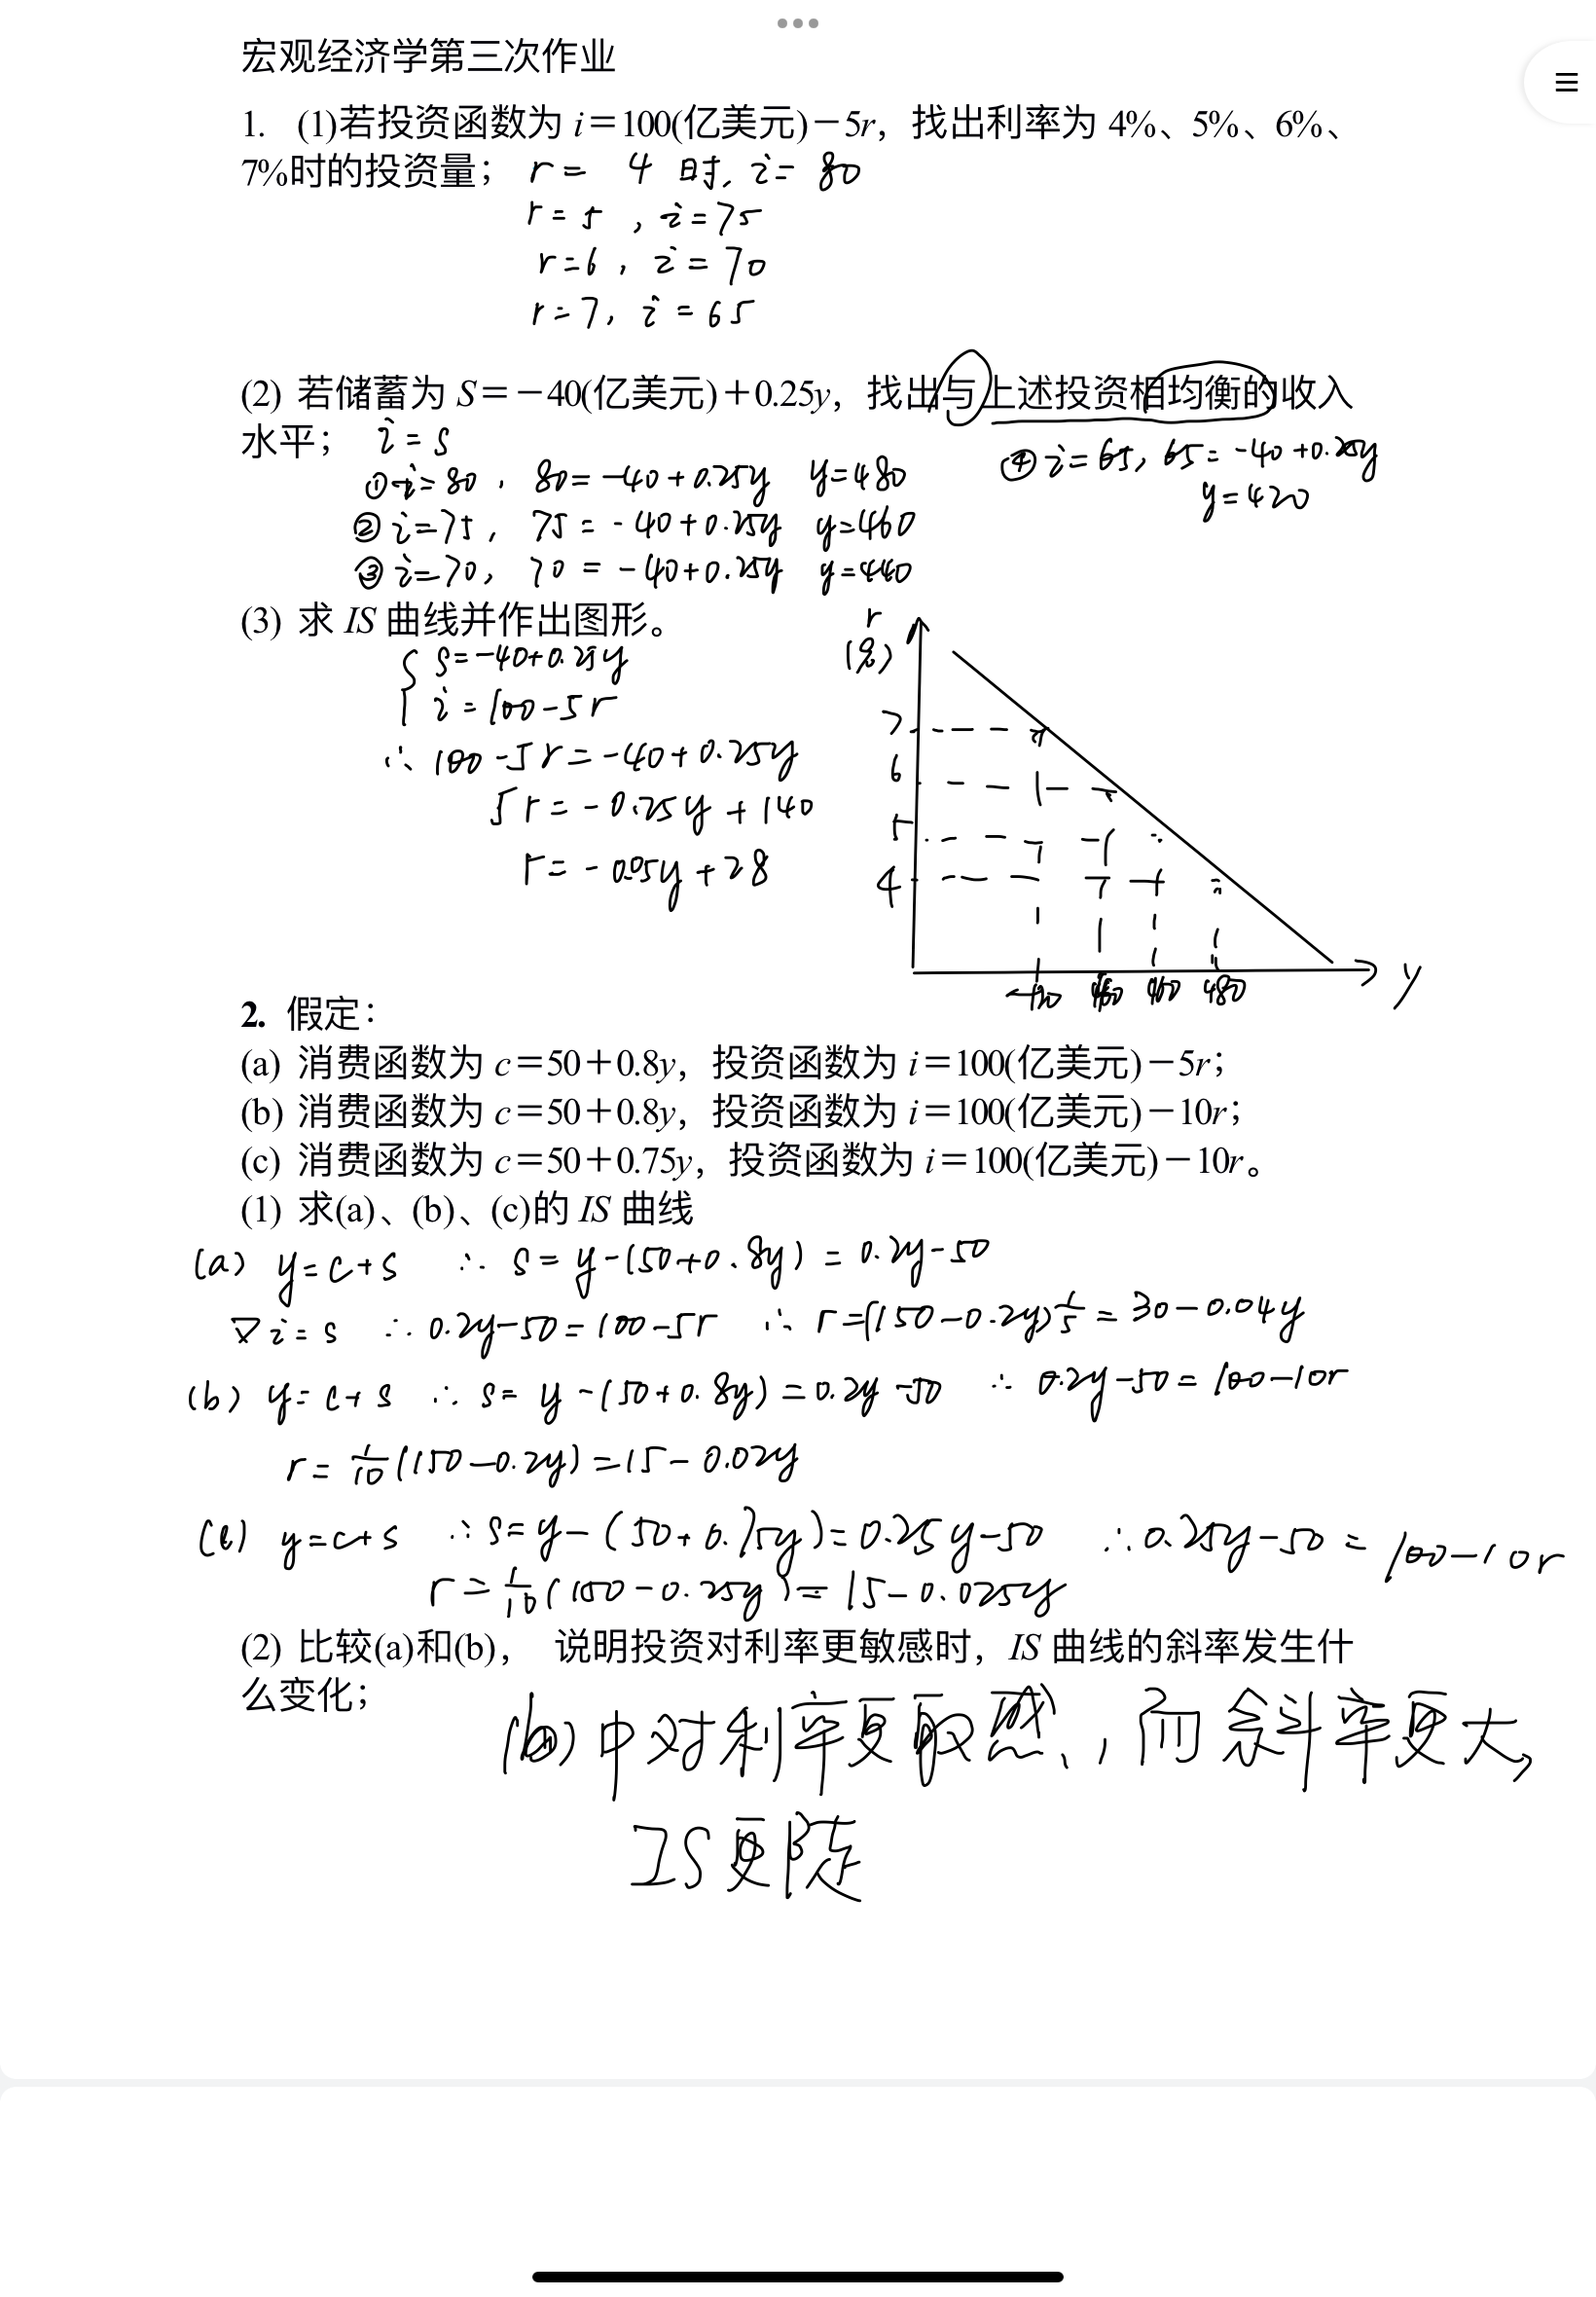 宏观经济学第三次作业
1. (1)若投资函数为 i=100(亿美元)-5r，找出利率为 4%、5%、6%、
7%时的投资量； r= 4 时, i= 80
r=5 , i=75
r=6 , i=70
r=7, i=65
(2) 若储蓄为 S=-40(亿美元)+0.25y，找出与上述投资相均衡的收入
水平； i=s
①i=80 , 80=-40+0.25y y=480
②i=75 , 75=-40+0.25y y=460
③i=70, 70=-40+0.25y y=440
④i=65, 65=-40+0.25y
y=420
(3) 求 IS 曲线并作出图形。
s=-40+0.25y
i=100-5r
∴ 100-5r=-40+0.25y
5r=-0.25y+140
r=-0.05y+28
r
(%)
7
6
5
4
420 460 480
y
2. 假定：
(a) 消费函数为 c=50+0.8y，投资函数为 i=100(亿美元)-5r；
(b) 消费函数为 c=50+0.8y，投资函数为 i=100(亿美元)-10r；
(c) 消费函数为 c=50+0.75y，投资函数为 i=100(亿美元)-10r。
(1) 求(a)、(b)、(c)的 IS 曲线
(a) y=c+s ∴ s=y-(50+0.8y)=0.2y-50
又i=s ∴ 0.2y-50=100-5r ∴ r=(150-0.2y)1/5=30-0.04y
(b) y=c+s ∴ s=y-(50+0.8y)=0.2y-50 ∴ 0.2y-50=100-10r
r=1/10(150-0.2y)=15-0.02y
(c) y=c+s ∴ s=y-(50+0.75y)=0.25y-50 ∴ 0.25y-50=100-10r
r=1/10(150-0.25y)=15-0.025y
(2) 比较(a)和(b)， 说明投资对利率更敏感时，IS 曲线的斜率发生什
么变化；
中对利率更敏感，而斜率更大,
IS更陡